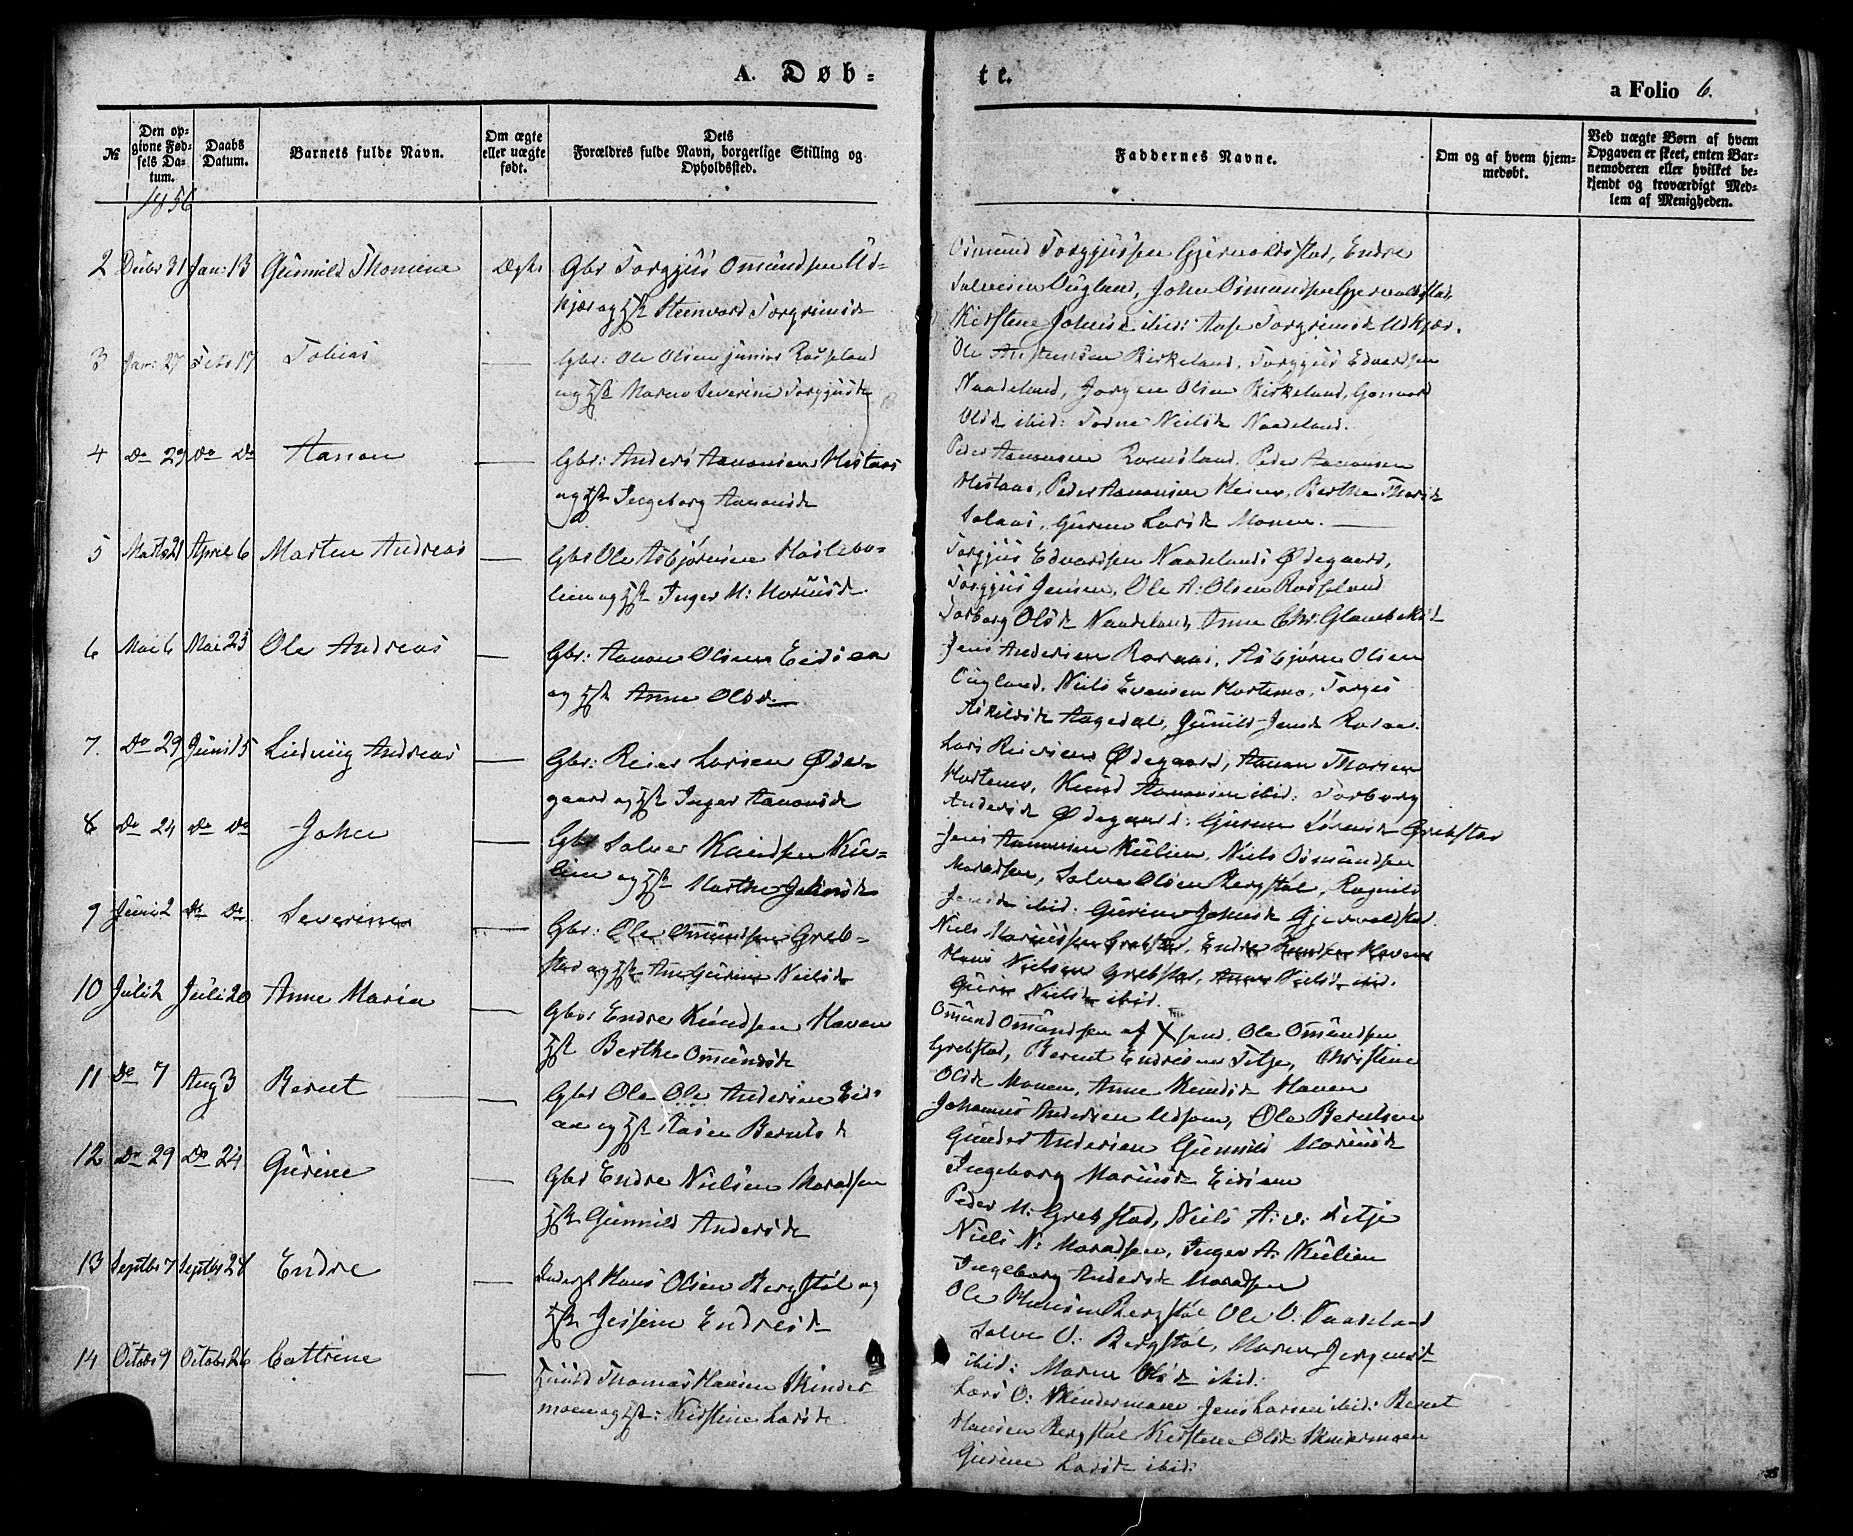 A. Døb-
te.
a Folio 6.
№
Den op-
givne Fød-
sels Da-
tum.
Daabs
Datum.
Barnets fulde Navn.
Om ægte
eller uægte
født.
Dets
Forældres fulde Navn, borgerlige Stilling og
Opholdssted.
Faddernes Navne.
Om og af hvem hjem-
medøbt.
Ved uægte Børn af hvem
Opgaven er skeet, enten Bar-
nemoderen eller hvilket be-
kjendt og troværdigt Med-
lem af Menigheden.
1856
2 Decbr 31 Jan: 13 Gunnild Thomine Ægte Gbr Torgjus Omundsen Ud-
kjær og Hst Steenvor Torgrimsdt
Osmund Torgjussen Gjervoldstad, Endre
Salvesen Ougland, John Osmundsen Gjervoldstad,
Kirstine Johnsd ibid: Aase Torgrimsdt Udkjær.
3 Jan: 27 Febr 17 Tobias — Gbr: Ole Olsen junior Rosseland
og Hst Maren Severine Torgjusdt
Ole Birkeland, Torgjus Edvardsen
Naadeland, Jørgen Olsen Birkeland, Gonvor
Olsdt ibid: Torine Nielsdt Naadeland.
4 Do 29 Do Do Aanon — Gbr: Anders Aanonsen Mestaas
og Hst Ingeborg Aanonsdt
Peder Aanonsen Romsland, Peder Aanonsen
Mestaas, Peder Aanonsen Berthe
Solaas, Gurine Larsdt Monen. —
5 Marts 21 April 6 Morten Andreas — Gbr Ole Asbjørnsen Haslebo-
lien og Hst Inger M: Moriusdt.
Torgjus Edvardsen Naadelands Ødegaard,
Torgjus Jensen, Ole A: Olsen Rosseland
Torborg Olsdt Naadeland, Anne Chr:
6 Mai 6 Mai 25 Ole Andreas — Gbr: Aanon Olsen Eidsaa
og Hst Anne Olsd.
Jens Andersen Roraas, Asbjørn Olsen
Ougland, Niels Evensen Hortemo, Torges
Askildsdt Aagedal, Gunild Jensdt Roraas.
7. Do 29 Juni 15 Ludvig Andreas — Gbr: Reier Larsen Øde-
gaard og Hst Inger Aanonsdt
Lars Reiersen Ødegaard, Aanon Thorsen
Hortemo, Knud Aanonsen ibid: Torborg
Andersdt Ødegaard: Gurine Grebstad
8 Do 24 Do Do John — Gbr Salve Knudsen Ku-
lien og Hst Marthe Johnsdt
Jens Aanonsen Kulien, Niels Osmundsen
Moradsen, Salve Olsen Bergstøl, Ragnild
Jensdt ibid: Gurine Johnsdt Gjervoldstad.
9 Juni 2 Do Do. Severine — Gbr: Ole Omundsen Greb-
stad og Hst Ane Gurine Nielsdt
Niels Mariussen Grebstad, Endre Knudsen Haven
Hans Nielsen Grebstad, Anne Nielsdt ibid.
Gurie Nielsdt ibid.
10 Juli 2 Juli 20 Anne Maria — Gbr Endre Knudsen Haven
Hst Berthe Omundsdt
Omund Omundsen af Ole Omundsen
Grebstad, Bernt Endresen Titje, Christine
Olsdt Monen, Anne Knudsdt Haven
11 Do 7 Aug 3 Bernt — Gbr Ole Ole Andersen Eids-
aa og Hst Aasen Berntsdt
Johannes Andersen Udsom, Ole Berntsen
Gunder Andersen Gunnild Moriusdt
Ingeborg Moriusdt Eidsaa
12 Do 29 Do 24 Gurine — Gbr Endre Nielsen Moradsen
Hst Gunnild Andersdt
Peder M: Grebstad, Niels A: v: Titje
Niels N: Moradsen, Inger A. Kulien
Ingeborg Andersdt Moradsen
13 Septbr 7 Septbr 28 Endre — Hans Olsen Bergstøl og
Hst Jessine Endresdt
Ole Hansen Bergstøl Ole O. Naadeland
Salve O: Bergstøl, Maren Jørgensdt
ibid: Maren Olsdt ibid:
14 Octobr 9 Octobr 26 Cattrine — Thomas Hansen Skinder
moen og Hst: Kirstine Larsdt.
Lars O: Skindermoen Jens Larsen ibid: Bernt
Hansen Bergstøl Kirstine Olsdt Skindermoen
Gurine Larsdt ibid: